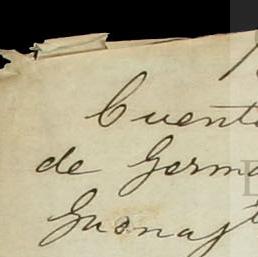 Cuent
de Germa
Guanaj